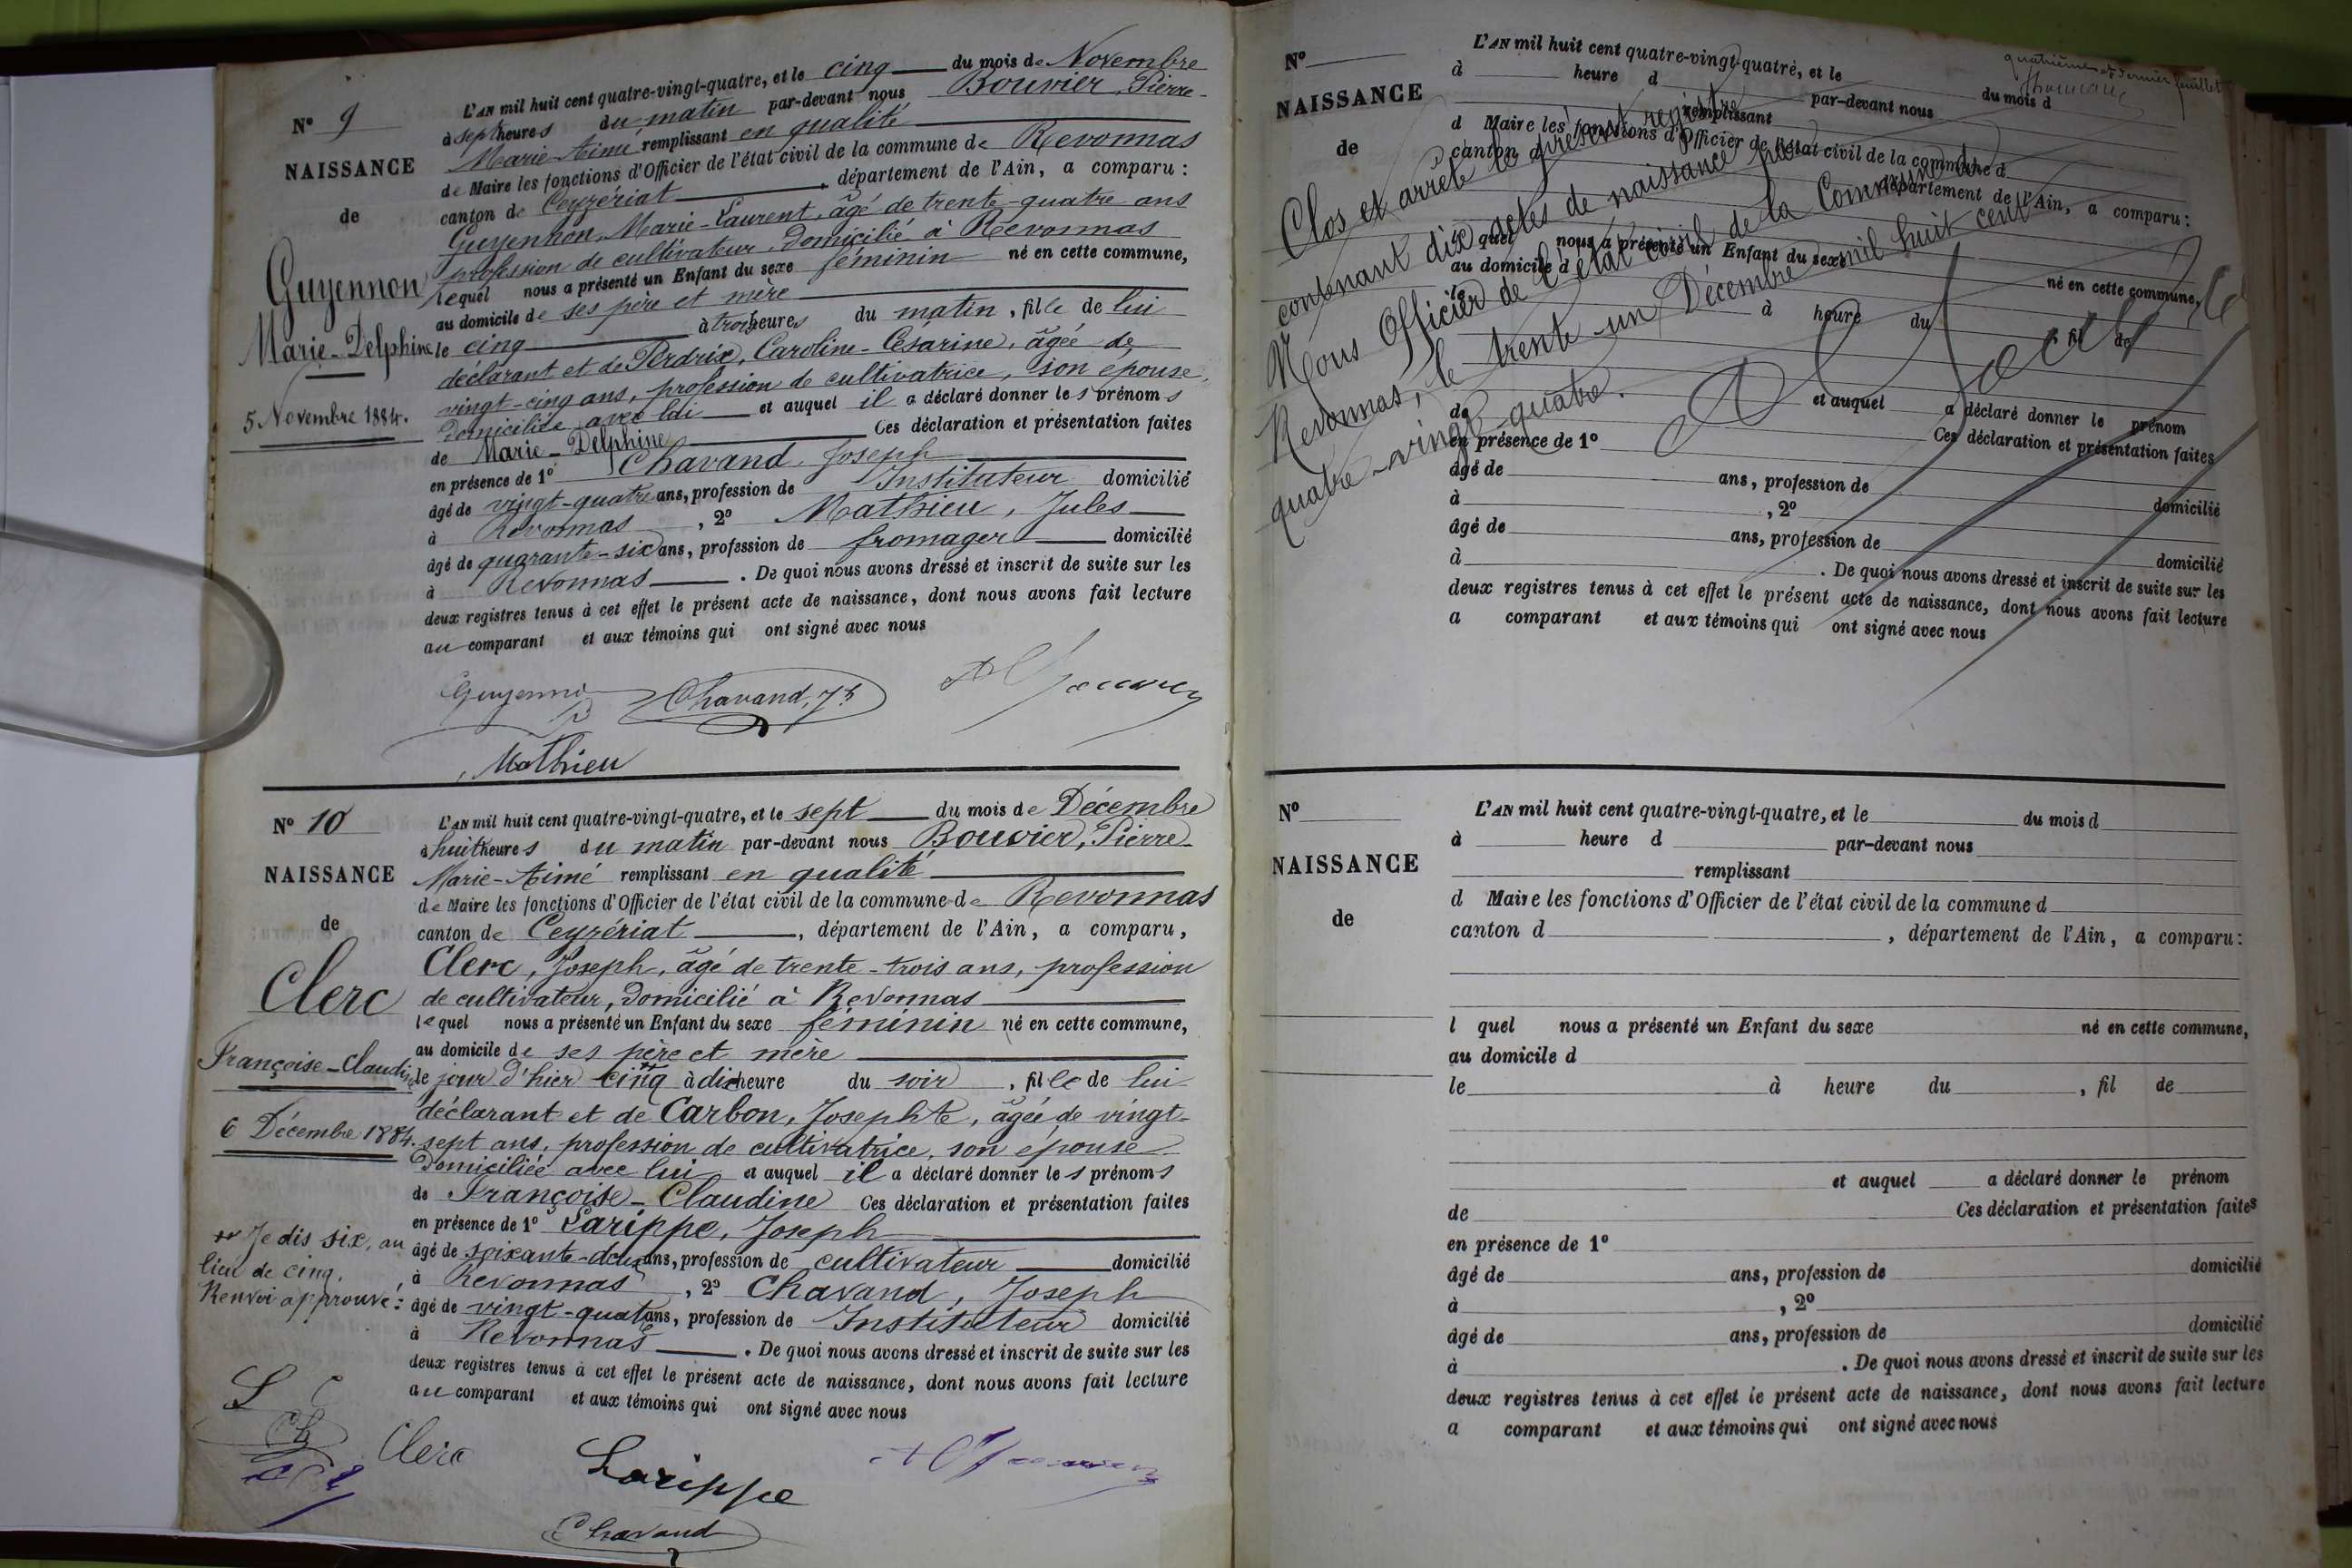 N° 9
NAISSANCE
de
Guyennon
Marie-Delphine
5 Novembre 1884.
L'AN mil huit cent quatre-vingt-quatre, et le cinq du mois de Novembre
à sept heures du matin par-devant nous Bouvier, Pierre-
Marie-Aimé remplissant en qualité
de Maire les fonctions d'Officier de l'état civil de la commune de Revonnas
canton de Ceyzériat, département de l'Ain, a comparu :
Guyennon, Marie-Laurent, âgé de trente-quatre ans
profession de cultivateur, domicilié à Revonnas
lequel nous a présenté un Enfant du sexe féminin né en cette commune,
au domicile de ses père et mère
le cinq à trois heures du matin, fille de lui
déclarant et de Perdrix, Caroline-Césarine, âgée de
vingt-cinq ans, profession de cultivatrice, son épouse,
domiciliée avec lui et auquel il a déclaré donner les prénoms
de Marie-Delphine Ces déclaration et présentation faites
en présence de 1° Chavand, Joseph
âgé de vingt-quatre ans, profession de Instituteur domicilié
à Revonnas, 2° Mathieu, Jules
âgé de quarante-six ans, profession de fromager domicilié
à Revonnas. De quoi nous avons dressé et inscrit de suite sur les
deux registres tenus à cet effet le présent acte de naissance, dont nous avons fait lecture
au comparant et aux témoins qui ont signé avec nous
Chavand, Jh
Mathieu
N° 10
NAISSANCE
de
Clerc
Françoise-Claudine
6 Décembre 1884.
Je dis six, au
lieu de cinq.
Renvoi approuvé :
L'AN mil huit cent quatre-vingt-quatre, et le sept du mois de Décembre
à huit heures du matin par-devant nous Bouvier, Pierre-
Marie-Aimé remplissant en qualité
de Maire les fonctions d'Officier de l'état civil de la commune de Revonnas
canton de Ceyzériat, département de l'Ain, a comparu,
Clerc, Joseph, âgé de trente-trois ans, profession
de cultivateur, domicilié à Revonnas
lequel nous a présenté un Enfant du sexe féminin né en cette commune,
au domicile de ses père et mère
le jour d'hier cinq à dix heure du soir, fille de lui
déclarant et de Carbon, Josephte, âgée de vingt-
sept ans, profession de cultivatrice, son épouse
domiciliée avec lui et auquel il a déclaré donner les prénoms
de Françoise-Claudine Ces déclaration et présentation faites
en présence de 1° Larippe, Joseph
âgé de soixante-deux ans, profession de cultivateur domicilié
à Revonnas, 2° Chavand, Joseph
âgé de vingt-quatre ans, profession de Instituteur domicilié
à Revonnas. De quoi nous avons dressé et inscrit de suite sur les
deux registres tenus à cet effet le présent acte de naissance, dont nous avons fait lecture
au comparant et aux témoins qui ont signé avec nous
Ch
Clerc
Larippe
Chavand
quatrième et dernier feuillet
N°
NAISSANCE
de
L'AN mil huit cent quatre-vingt-quatre, et le du mois d
à heure d par-devant nous
remplissant
d Maire les fonctions d'Officier de l'état civil de la commune d
canton d département de l'Ain, a comparu :
l quel nous a présenté un Enfant du sexe né en cette commune,
au domicile d
le à heure du fil de
et auquel a déclaré donner le prénom
de Ces déclaration et présentation faites
en présence de 1°
âgé de ans, profession de domicilié
à , 2°
âgé de ans, profession de domicilié
à . De quoi nous avons dressé et inscrit de suite sur les
deux registres tenus à cet effet le présent acte de naissance, dont nous avons fait lecture
a comparant et aux témoins qui ont signé avec nous
Clos et arrêté le présent registre
contenant dix actes de naissance par
Nous Officier de l'état civil de la Commune de
Revonnas, le trente-un Décembre mil huit cent
quatre-vingt-quatre.
N°
NAISSANCE
de
L'AN mil huit cent quatre-vingt-quatre, et le du mois d
à heure d par-devant nous
remplissant
d Maire les fonctions d'Officier de l'état civil de la commune d
canton d , département de l'Ain, a comparu :
l quel nous a présenté un Enfant du sexe né en cette commune,
au domicile d
le à heure du , fil de
et auquel a déclaré donner le prénom
de Ces déclaration et présentation faites
en présence de 1°
âgé de ans, profession de domicilié
à , 2°
âgé de ans, profession de domicilié
à . De quoi nous avons dressé et inscrit de suite sur les
deux registres tenus à cet effet le présent acte de naissance, dont nous avons fait lecture
a comparant et aux témoins qui ont signé avec nous